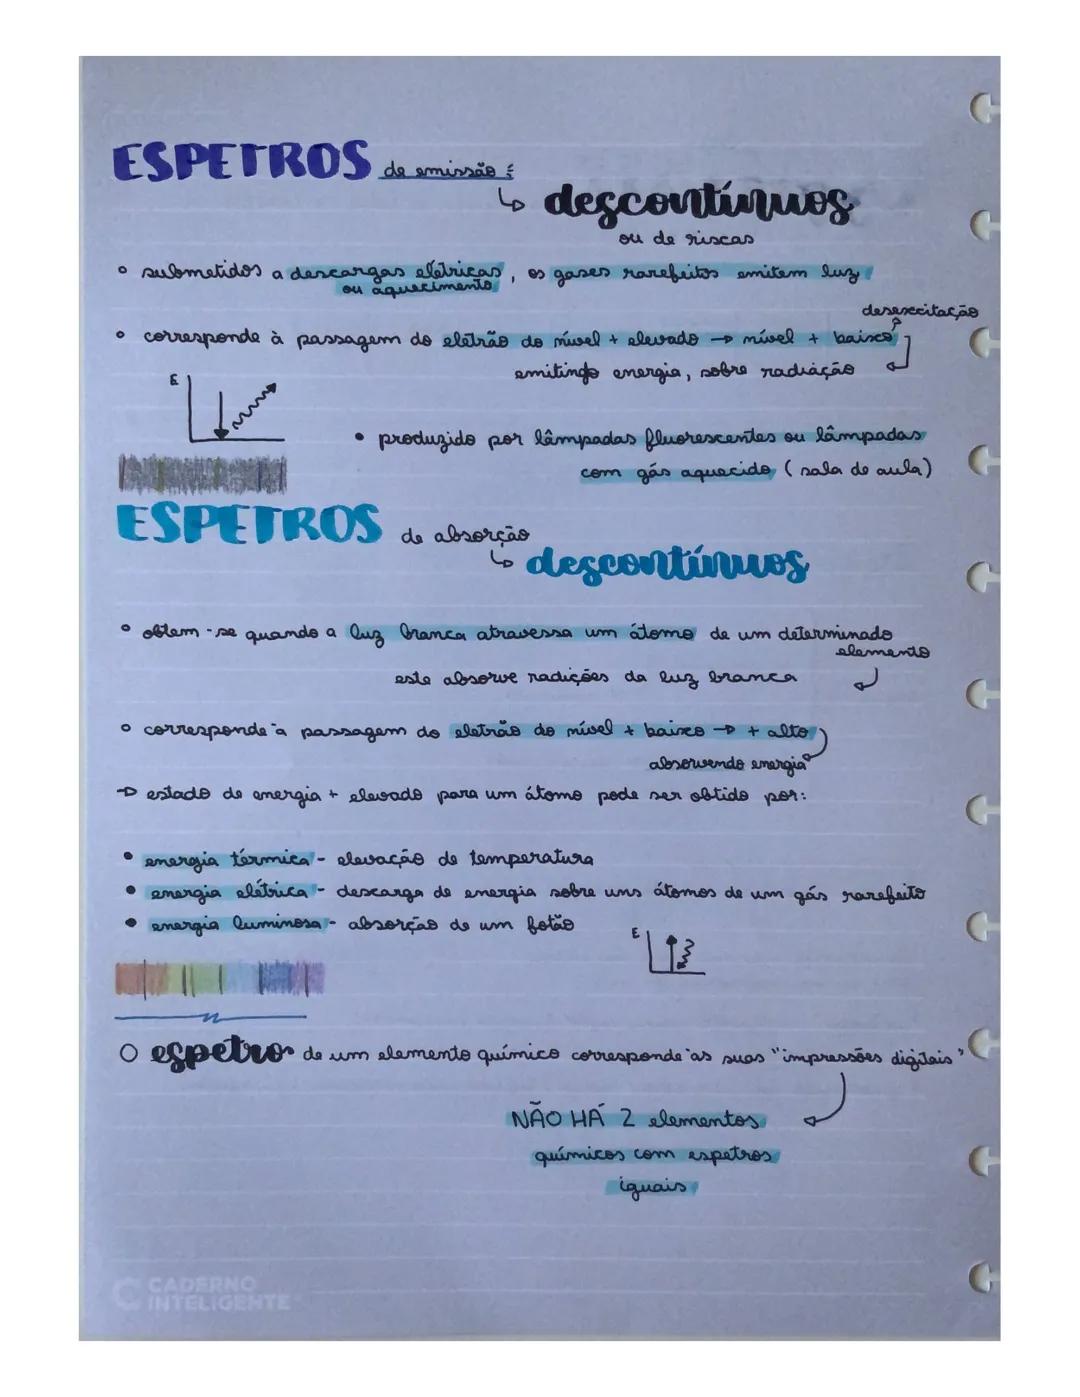 ESPETROS de emissão :
↳ descontínuos
ou de riscas
° submetidos a descargas elétricas, os gases rarefeitos emitem luz
ou aquecimento
desexcitação
° corresponde à passagem do eletrão do nível + elevado → nível + baixo
emitindo energia, sobre radiação
E
• produzido por lâmpadas fluorescentes ou lâmpadas
com gás aquecido (sala de aula)
ESPETROS de absorção
↳ descontínuos
° obtem-se quando a luz branca atravessa um átomo de um determinado
elemento
este absorve radições da luz branca
° corresponde à passagem do eletrão do nível + baixo → + alto
absorvendo energia
→ estado de energia + elevado para um átomo pode ser obtido por:
• energia térmica - elevação de temperatura
• energia elétrica - descarga de energia sobre uns átomos de um gás rarefeito
• energia luminosa - absorção de um fotão
E
O espetro de um elemento químico corresponde às suas "impressões digitais"
NÃO HÁ 2 elementos
químicos com espetros
iguais
CADERNO
INTELIGENTE